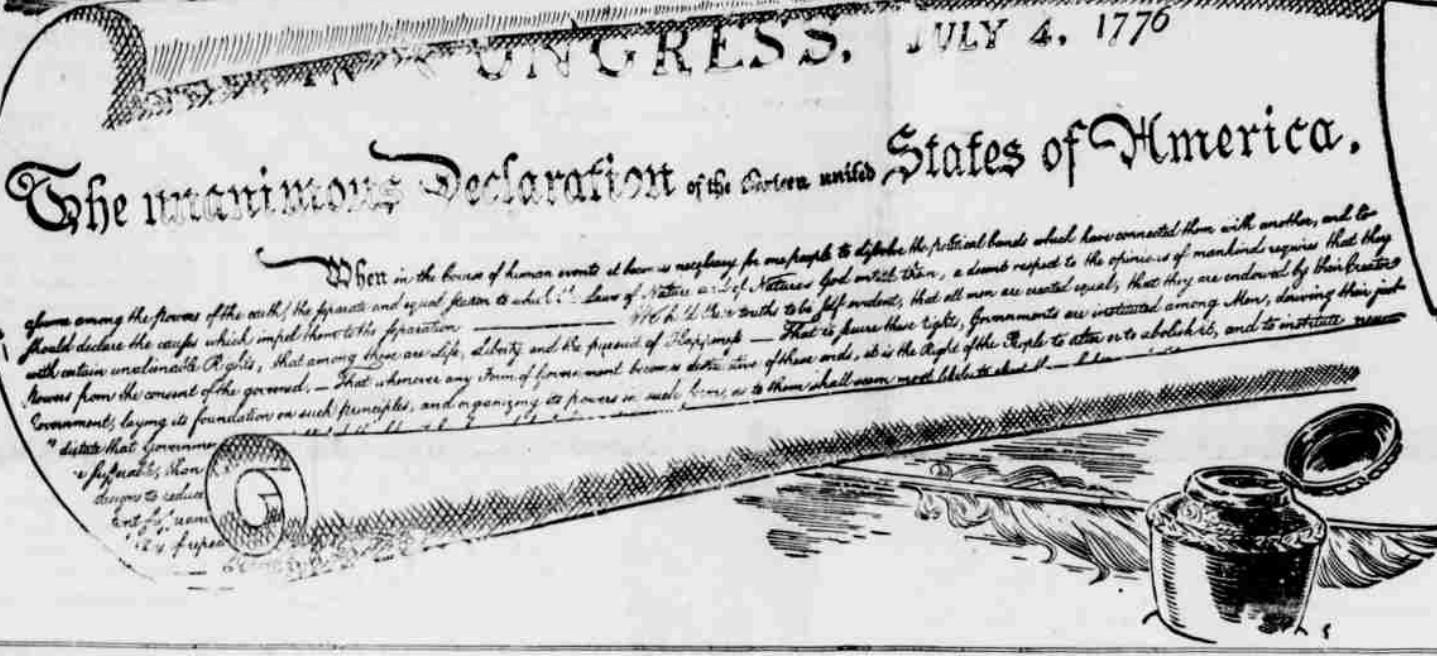 IN CONGRESS, JULY 4, 1776
The unanimous Declaration of the thirteen united States of America.
When in the Course of human events it becomes necessary for one people to dissolve the political bands which have connected them with another, and to
assume among the Powers of the earth, the separate and equal station to which the Laws of Nature and of Nature's God entitle them, a decent respect to the opinions of mankind requires that they
should declare the causes which impel them to the separation — We hold these truths to be self evident, that all men are created equal, that they are endowed by their Creator
with certain unalienable Rights, that among these are Life, Liberty and the pursuit of Happiness — That to secure these rights, Governments are instituted among Men, deriving their just
Powers from the consent of the governed, — That whenever any Form of Government becomes destructive of these ends, it is the Right of the People to alter or to abolish it, and to institute new
Government, laying its foundation on such principles, and organizing its powers in such form, as to them shall seem most likely to
dictate that Governme
sufferable, than
designs to reduce